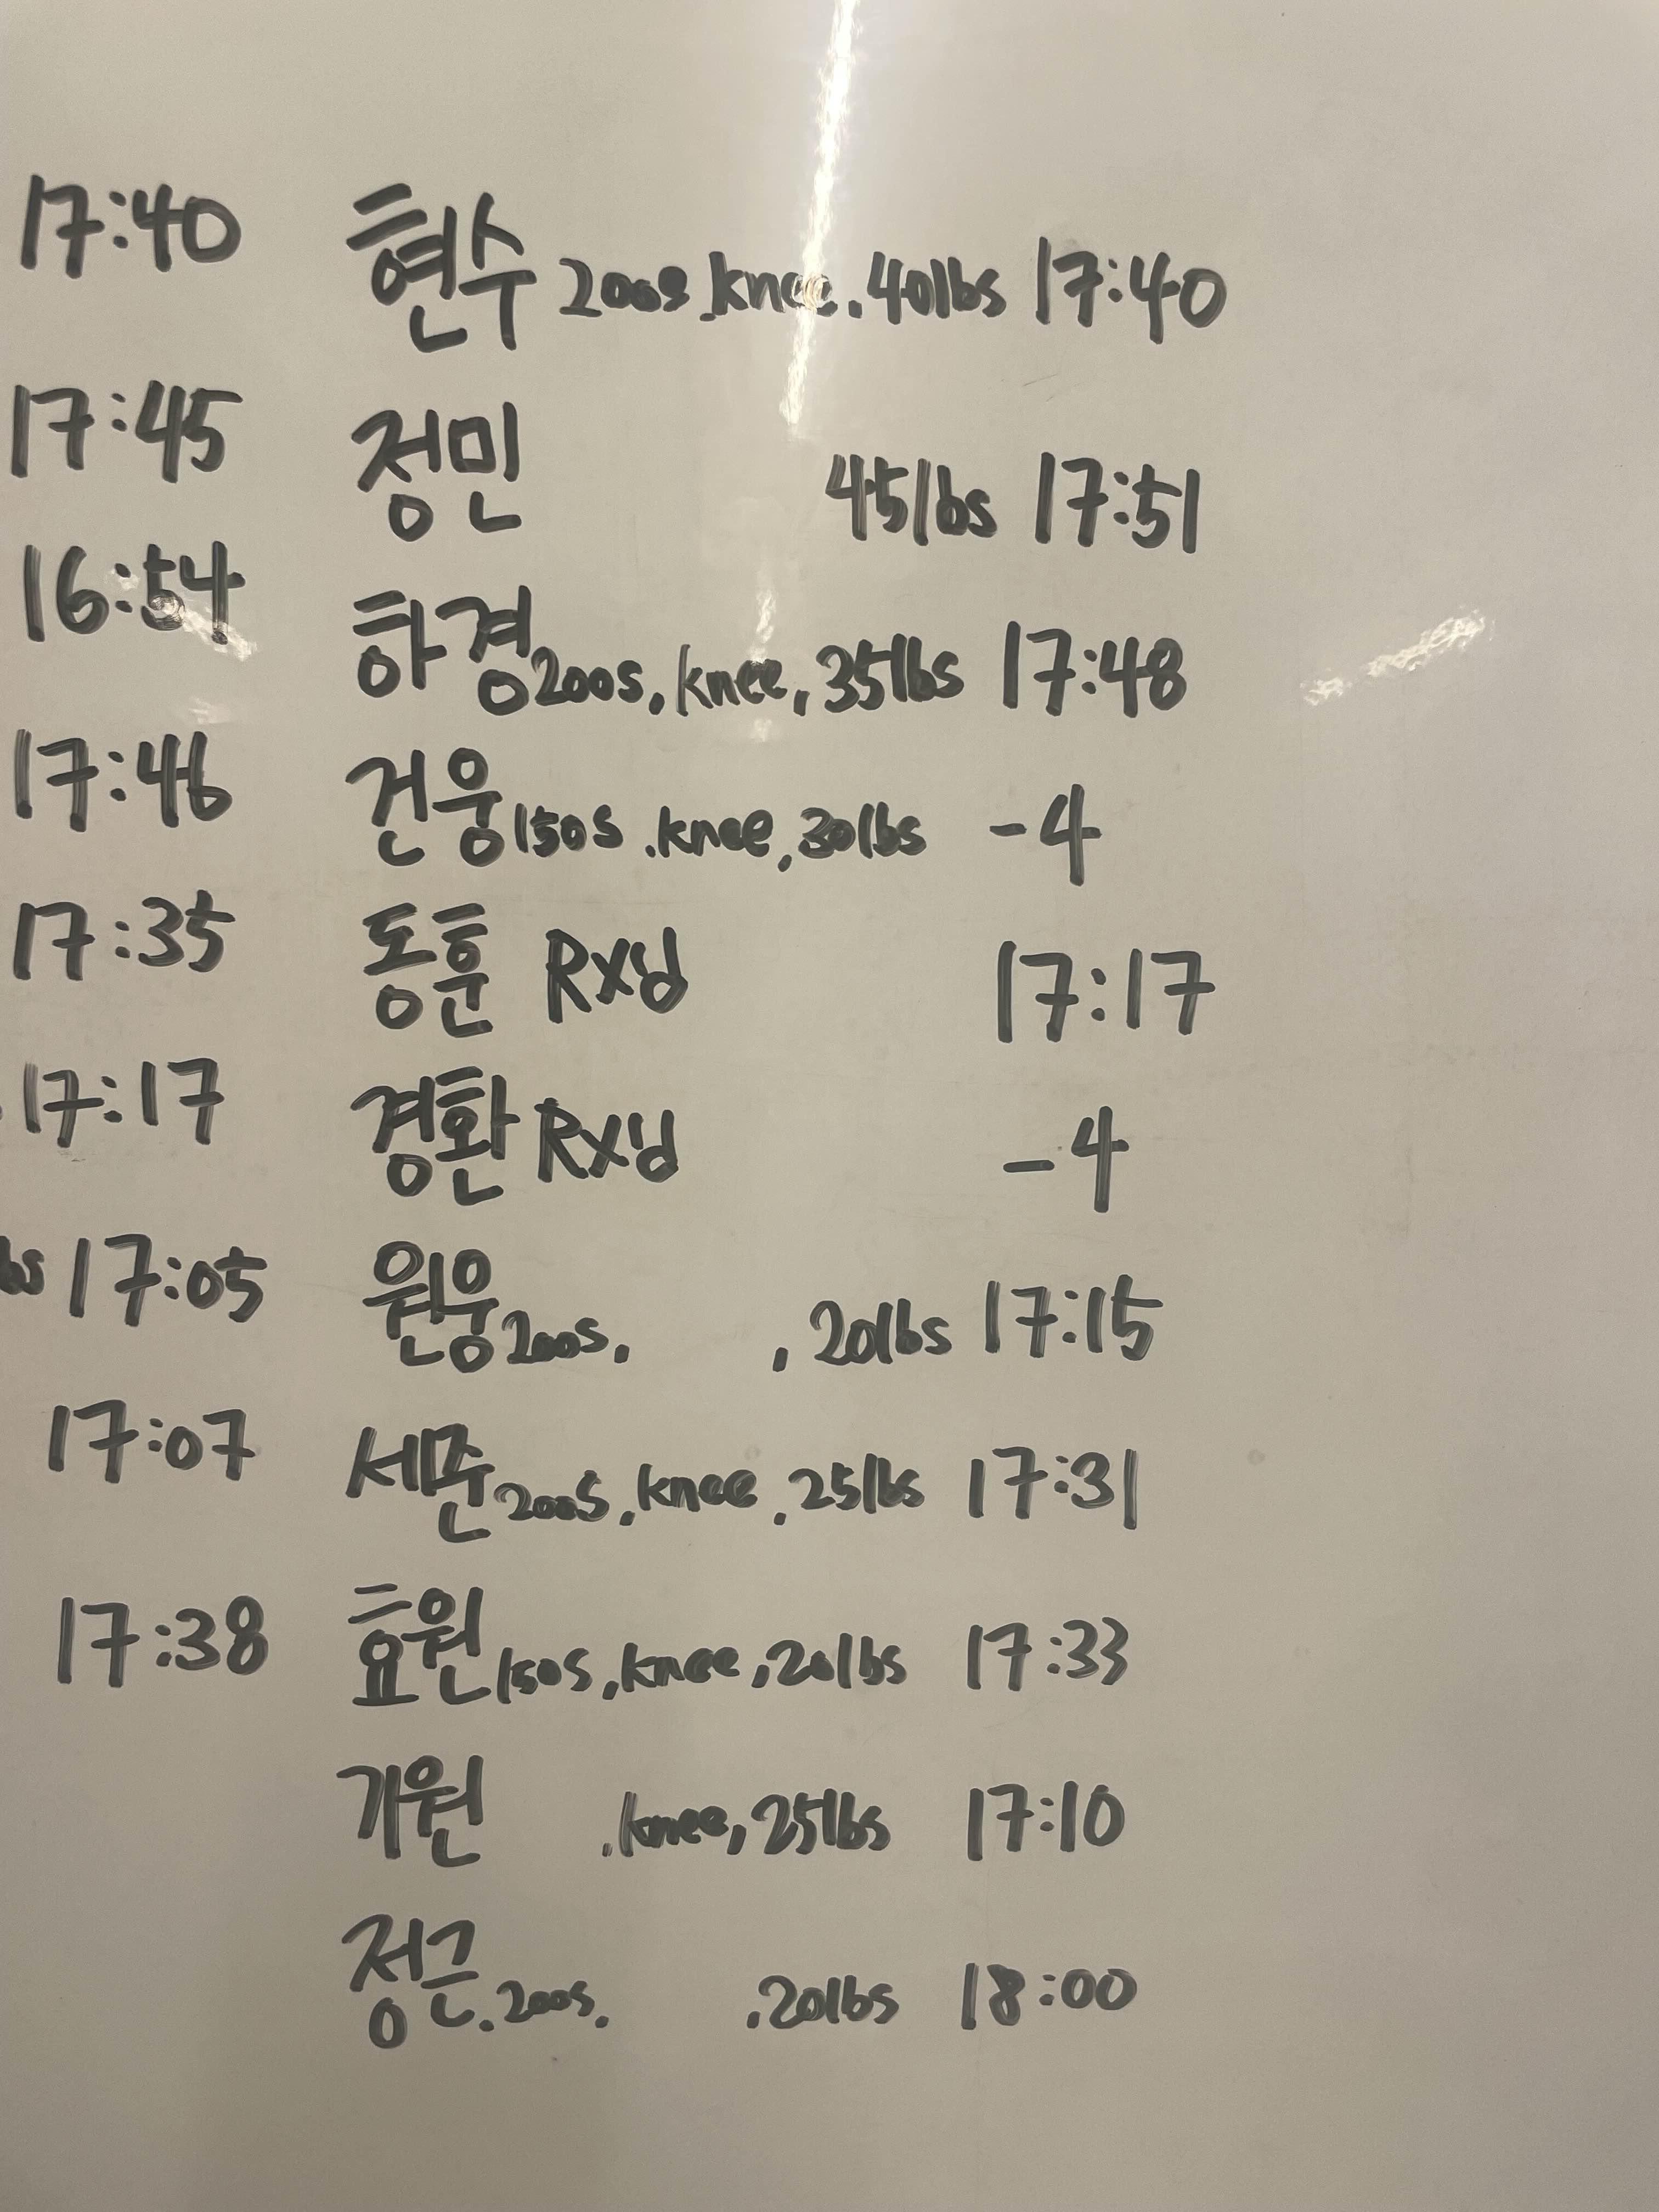 17:40 현수 200s.knee.40lbs 17:40
17:45 정민 45lbs 17:51
16:54 하경 200s, knee, 35lbs 17:48
17:46 건웅 150s.knee, 30lbs -4
17:35 동훈 Rx'd 17:17
17:17 경환 Rx'd -4
bs 17:05 원웅 200s. , 20lbs 17:15
17:07 세준 200s.knee.25lbs 17:31
17:38 효원 150s,knee,20lbs 17:33
기원 .knee, 25lbs 17:10
정근.200s. .20lbs 18:00